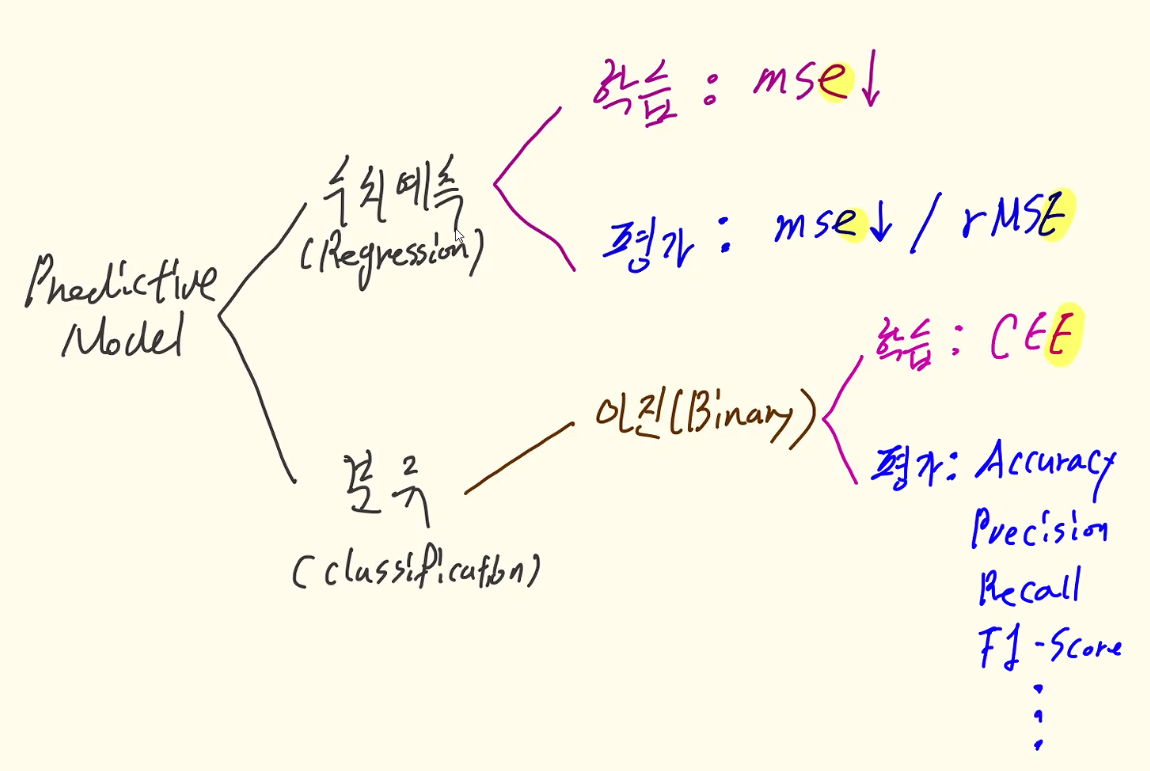 Predictive
Model
수치예측
(Regression)
학습 : mse↓
평가 : mse↓ / rMSE
분류
(classification)
이진(Binary)
학습 : CEE
평가 : Accuracy
Precision
Recall
F1-Score